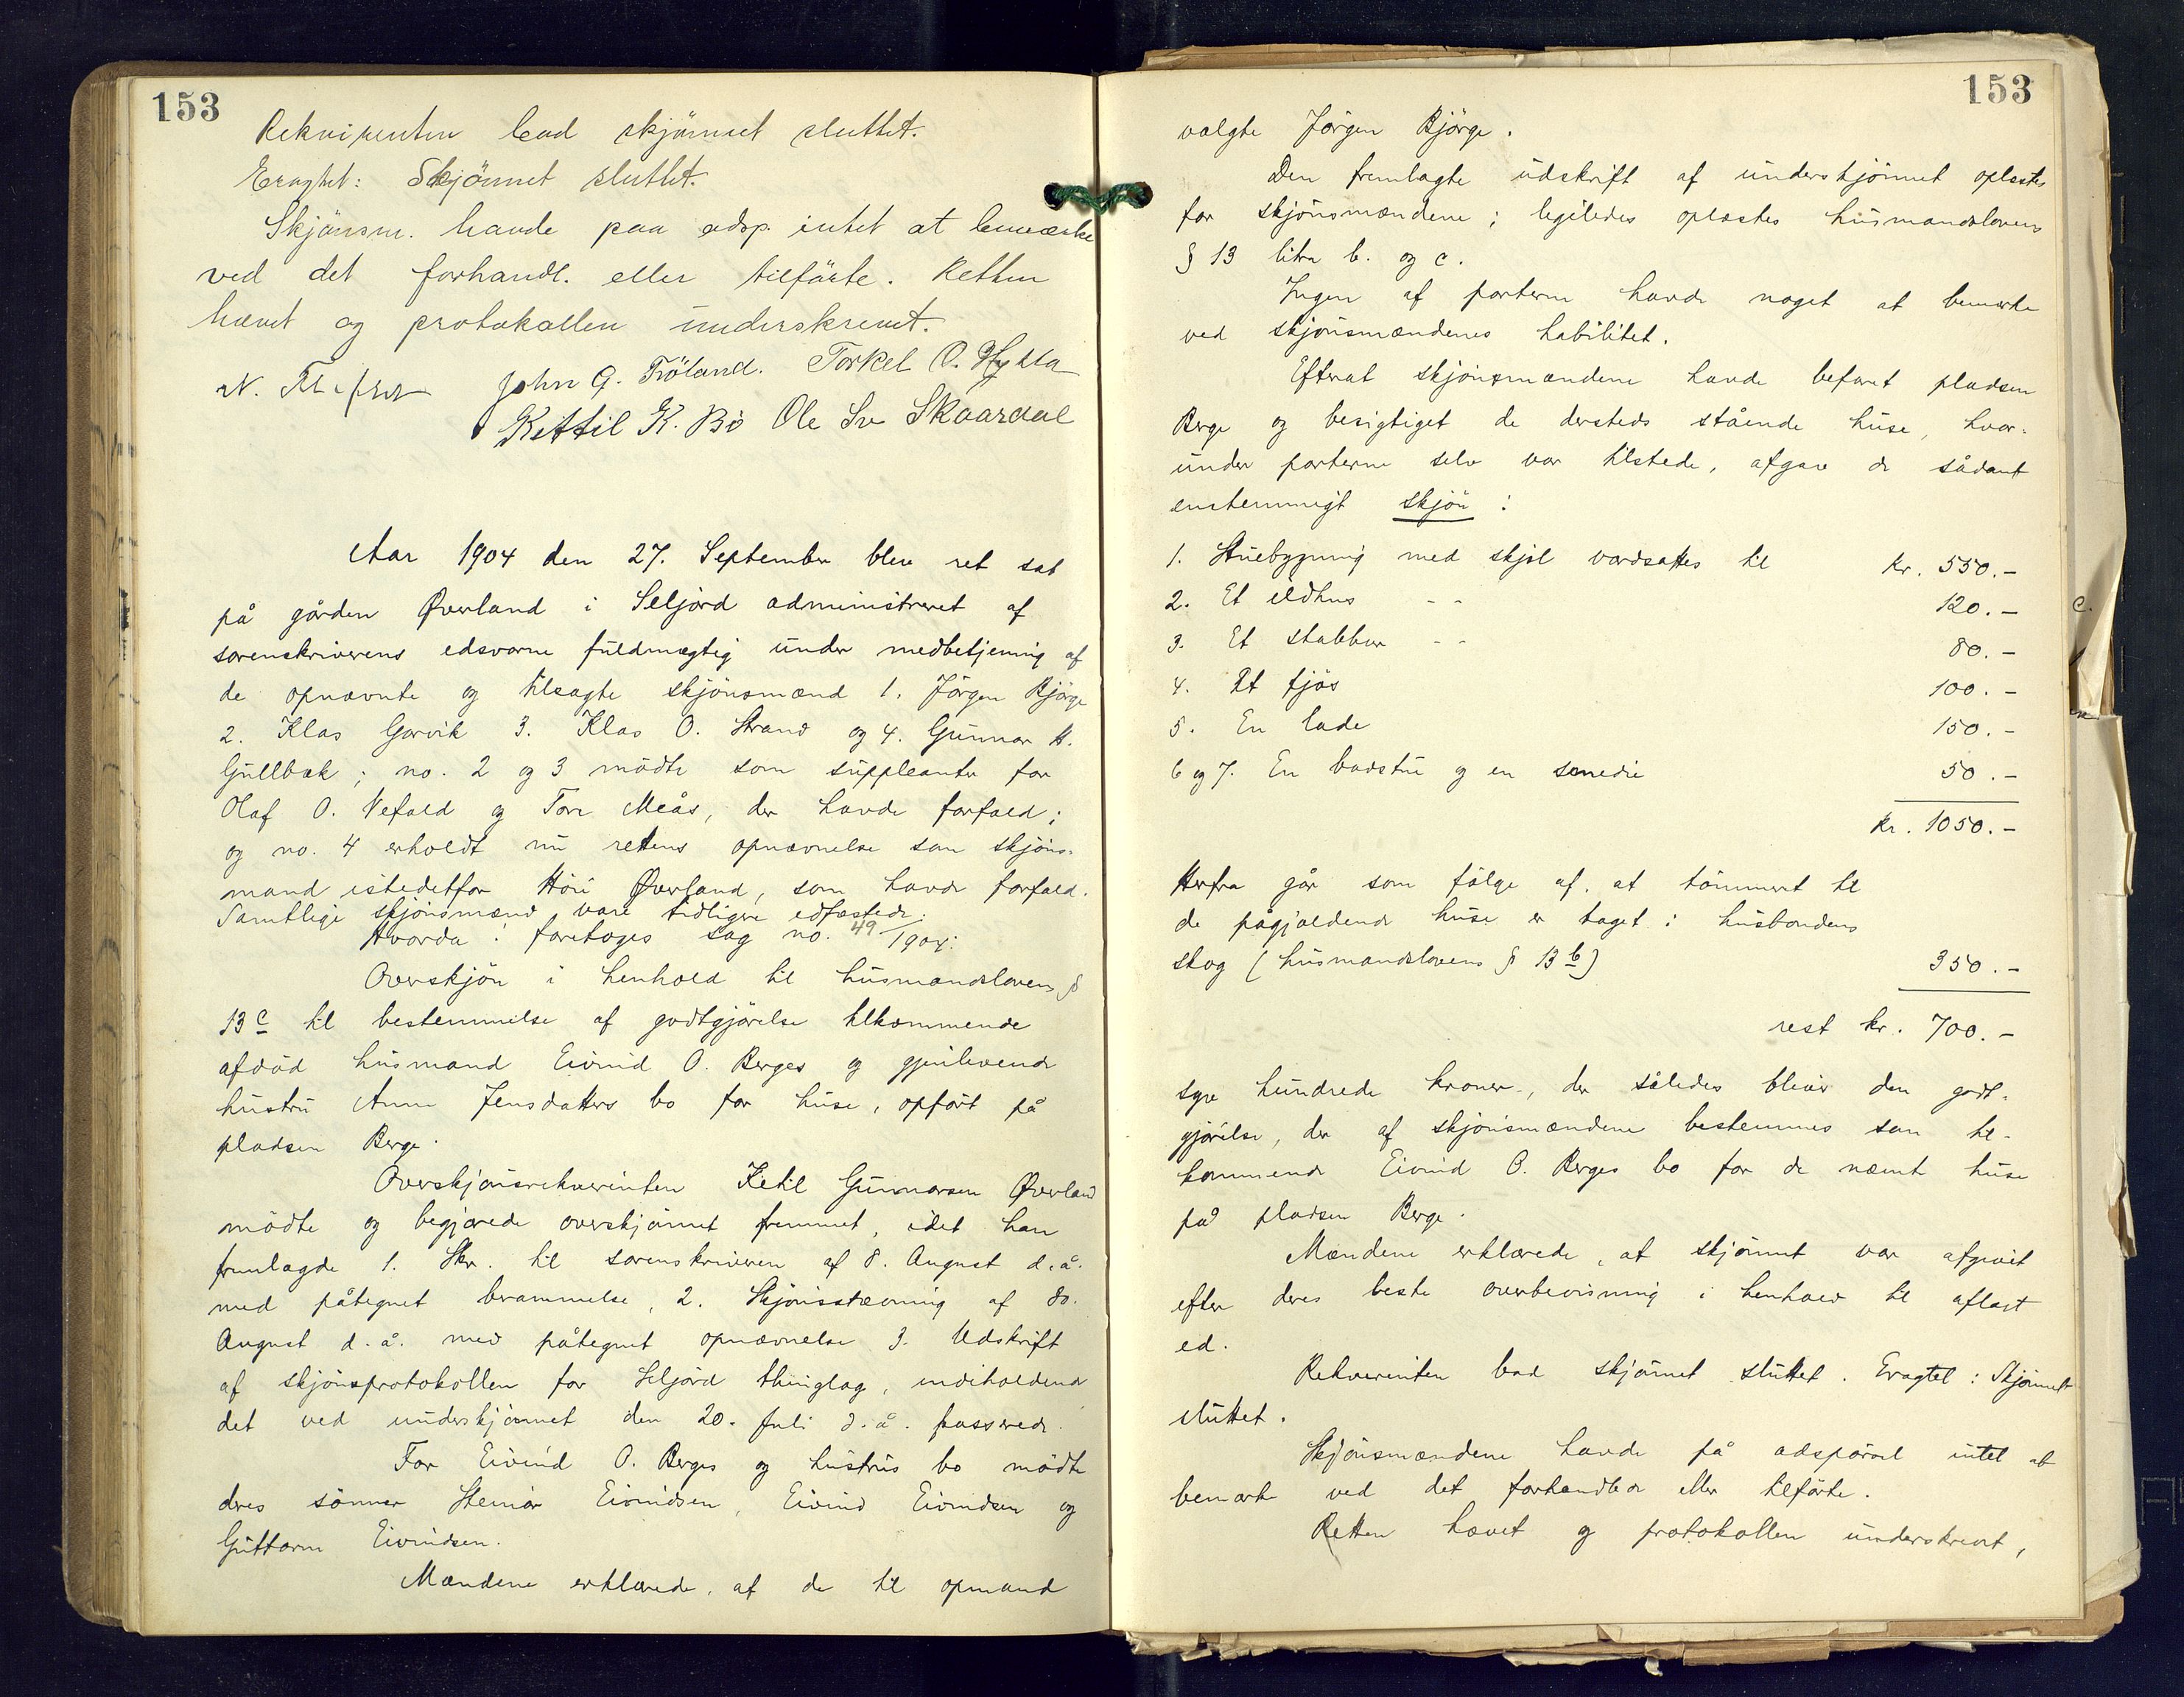 153
Rekvirenten bad skjönnet sluttet.
Eragtet: Skjönnet sluttet.
Skjönsm. havde paa adsp. intet at bemærke
ved det forhandl. eller tilförte. Retten
hævet og protokollen underskrevet.
N. John G. Tröland. Torkel O. Hykla
Kittil K. Bö Ole Sv Skaardal
Aar 1904 den 27. September blev ret sat
på gården Øverland i Seljord administreret af
sorenskriverens edsvorne fuldmægtig under medbetjening af
de opnævnte og tilsagte skjönsmænd 1. Jörgen Bjørge
2. Klas Garvik 3. Klas O. Strand og 4. Gunnar H.
Gullbæk; no. 2 og 3 mödte som suppleanter for
Olaf O. Nefald og Tore Meås, der havde forfald;
og no. 4 erholdt nu rettens opnævnelse som skjöns-
mand istedetfor Øverland, som havde forfald.
Samtlige skjönsmænd vare tidligere edfæstede.
Hvorda: foretoges sag no. 49/1904:
Overskjön i henhold til husmandslovens §
13 c til bestemmelse af godtgjörelse tilkommende
afdöd husmand Eivind O. Berges og gjenlevende
hustru Anne Jensdatters bo for huse, opfört på
pladsen Berge.
Overskjönsrekvirenten Ketil Gunnarsen Øverland
mödte og begjærede overskjönnet fremmet, idet han
fremlagde 1. Skr. til sorenskriveren af 8. August d.å.
med påtegnet berammelse, 2. Skjönsstævning af 80.
August d.å. med påtegnet opnævnelse 3. Udskrift
af skjönsprotokollen for Seljord thinglag, indeholdende
det ved underskjönnet den 20. Juli d.å. passerede.
For Eivind O. Berges og hustrus bo mödte
deres sönner Steinar Eivindsen, Eivind Eivindsen og
Guttorm Eivindsen.
Mændene erklærede, at de til opmand
153
valgte Jörgen Bjørge.
Den fremlagte udskrift af underskjönnet oplæstes
for skjönsmændene; ligeledes oplæstes husmandslovens
§ 13 litra b. og c.
Ingen af parterne havde noget at bemærke
ved skjönsmændenes habilitet.
Efterat skjönsmændene havde befaret pladsen
Berge og besigtiget de dersteds stående huse, hvor-
under parterne selv var tilstede, afgav de sådant
enstemmigt skjön:
1. Stuebygning med skjel værdsattes til kr. 550.-
2. Et ildhus - - 120.-
3. Et stabbur - - 80.-
4. Et fjös 100.-
5. En lade 150.-
6 og 7. En badstu og en smedie 50.-
Kr. 1050.-
Herfra går som fölge af, at tömmeret til
de pågjældende huse er taget i husbondens
skog (husmandslovens § 13 b) 350.-
rest kr. 700.-
syv hundrede kroner, der således bliver den godt-
gjörelse, der af skjönsmændene bestemmes som til-
kommende Eivind O. Berges bo for de nævnt huse
på pladsen Berge.
Mændene erklærede, at skjönnet var afgivet
efter deres beste overbevisning i henhold til aflagt
ed.
Rekvirenten bad skjönnet sluttet. Eragtet: Skjönnet
sluttet.
Skjönsmændene havde på adspörsel intet at
bemærke ved det forhandlede eller tilförte.
Retten hævet og protokollen underskrevet,